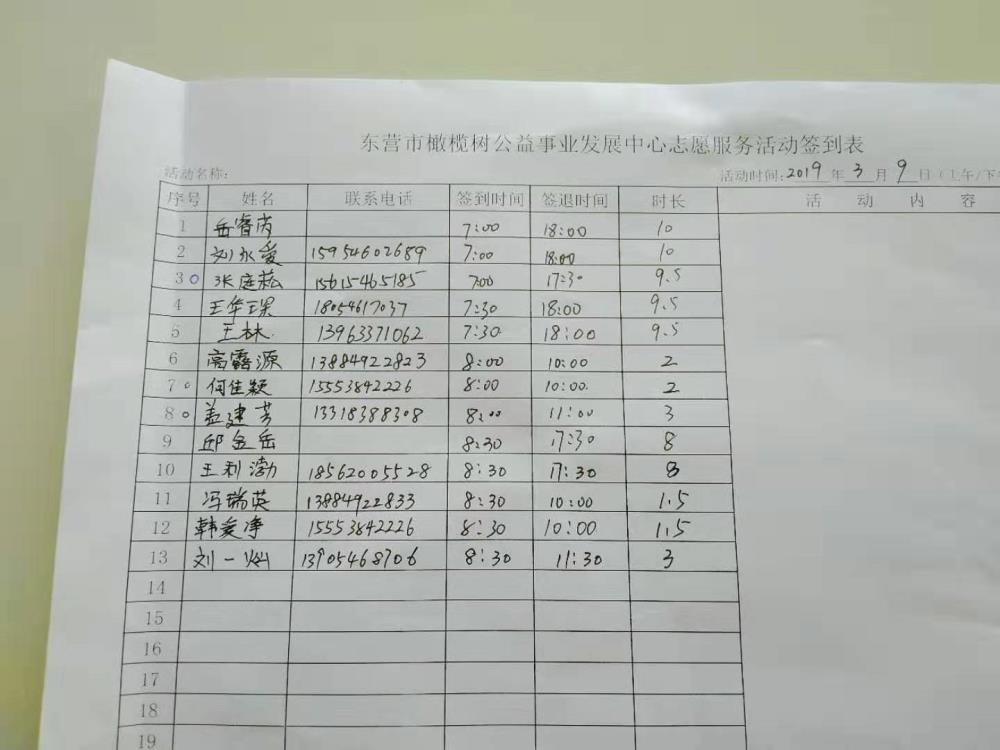 东营市橄榄树公益事业发展中心志愿服务活动签到表
活动名称: 活动时间:2019年3月9日(上午/下午
序号 姓名 联系电话 签到时间 签退时间 时长 活动内容
1 岳睿芮 7:00 18:00 10
2 刘永爱 15954602689 7:00 18:00 10
3 张庭菘 15615465185 7:00 17:30 9.5
4 王华琛 18054617037 7:30 18:00 9.5
5 王林 13963371062 7:30 18:00 9.5
6 高露源 13884922823 8:00 10:00 2
7 何佳颖 15553842226 8:00 10:00 2
8 盖建芳 13318388308 8:00 11:00 3
9 邱金岳 8:30 17:30 8
10 王利渤 18562005528 8:30 17:30 8
11 冯瑞英 13884922833 8:30 10:00 1.5
12 韩爱净 15553842226 8:30 10:00 1.5
13 刘一灿 13905468706 8:30 11:30 3
14
15
16
17
18
19